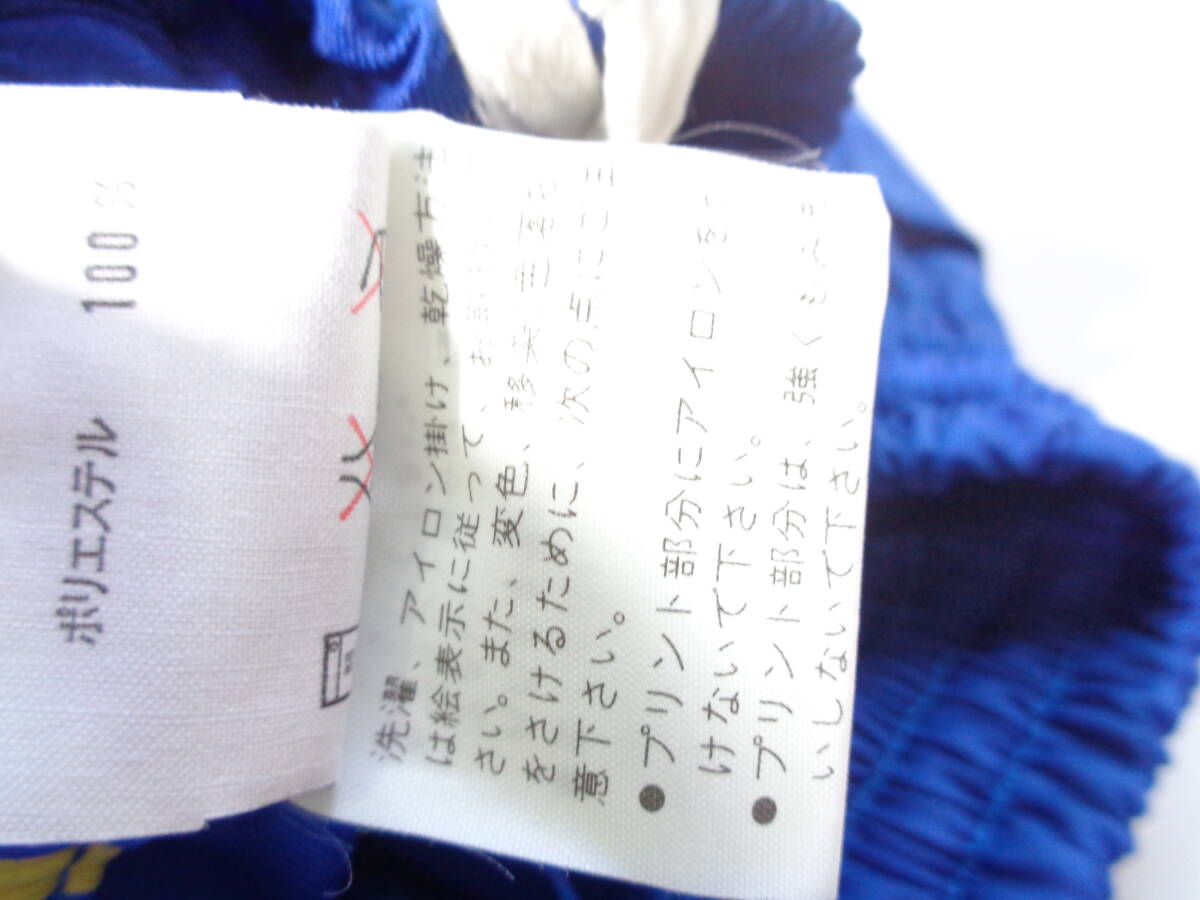 ポリエステル 100%
洗濯、アイロン掛け、乾燥方法
は絵表示に従って、お
さい。また、変色、移染
をさけるために、次の点にご注
意下さい。
●プリント部分にアイロンを
けないで下さい。
●プリント部分は、強く
いしないで下さい。